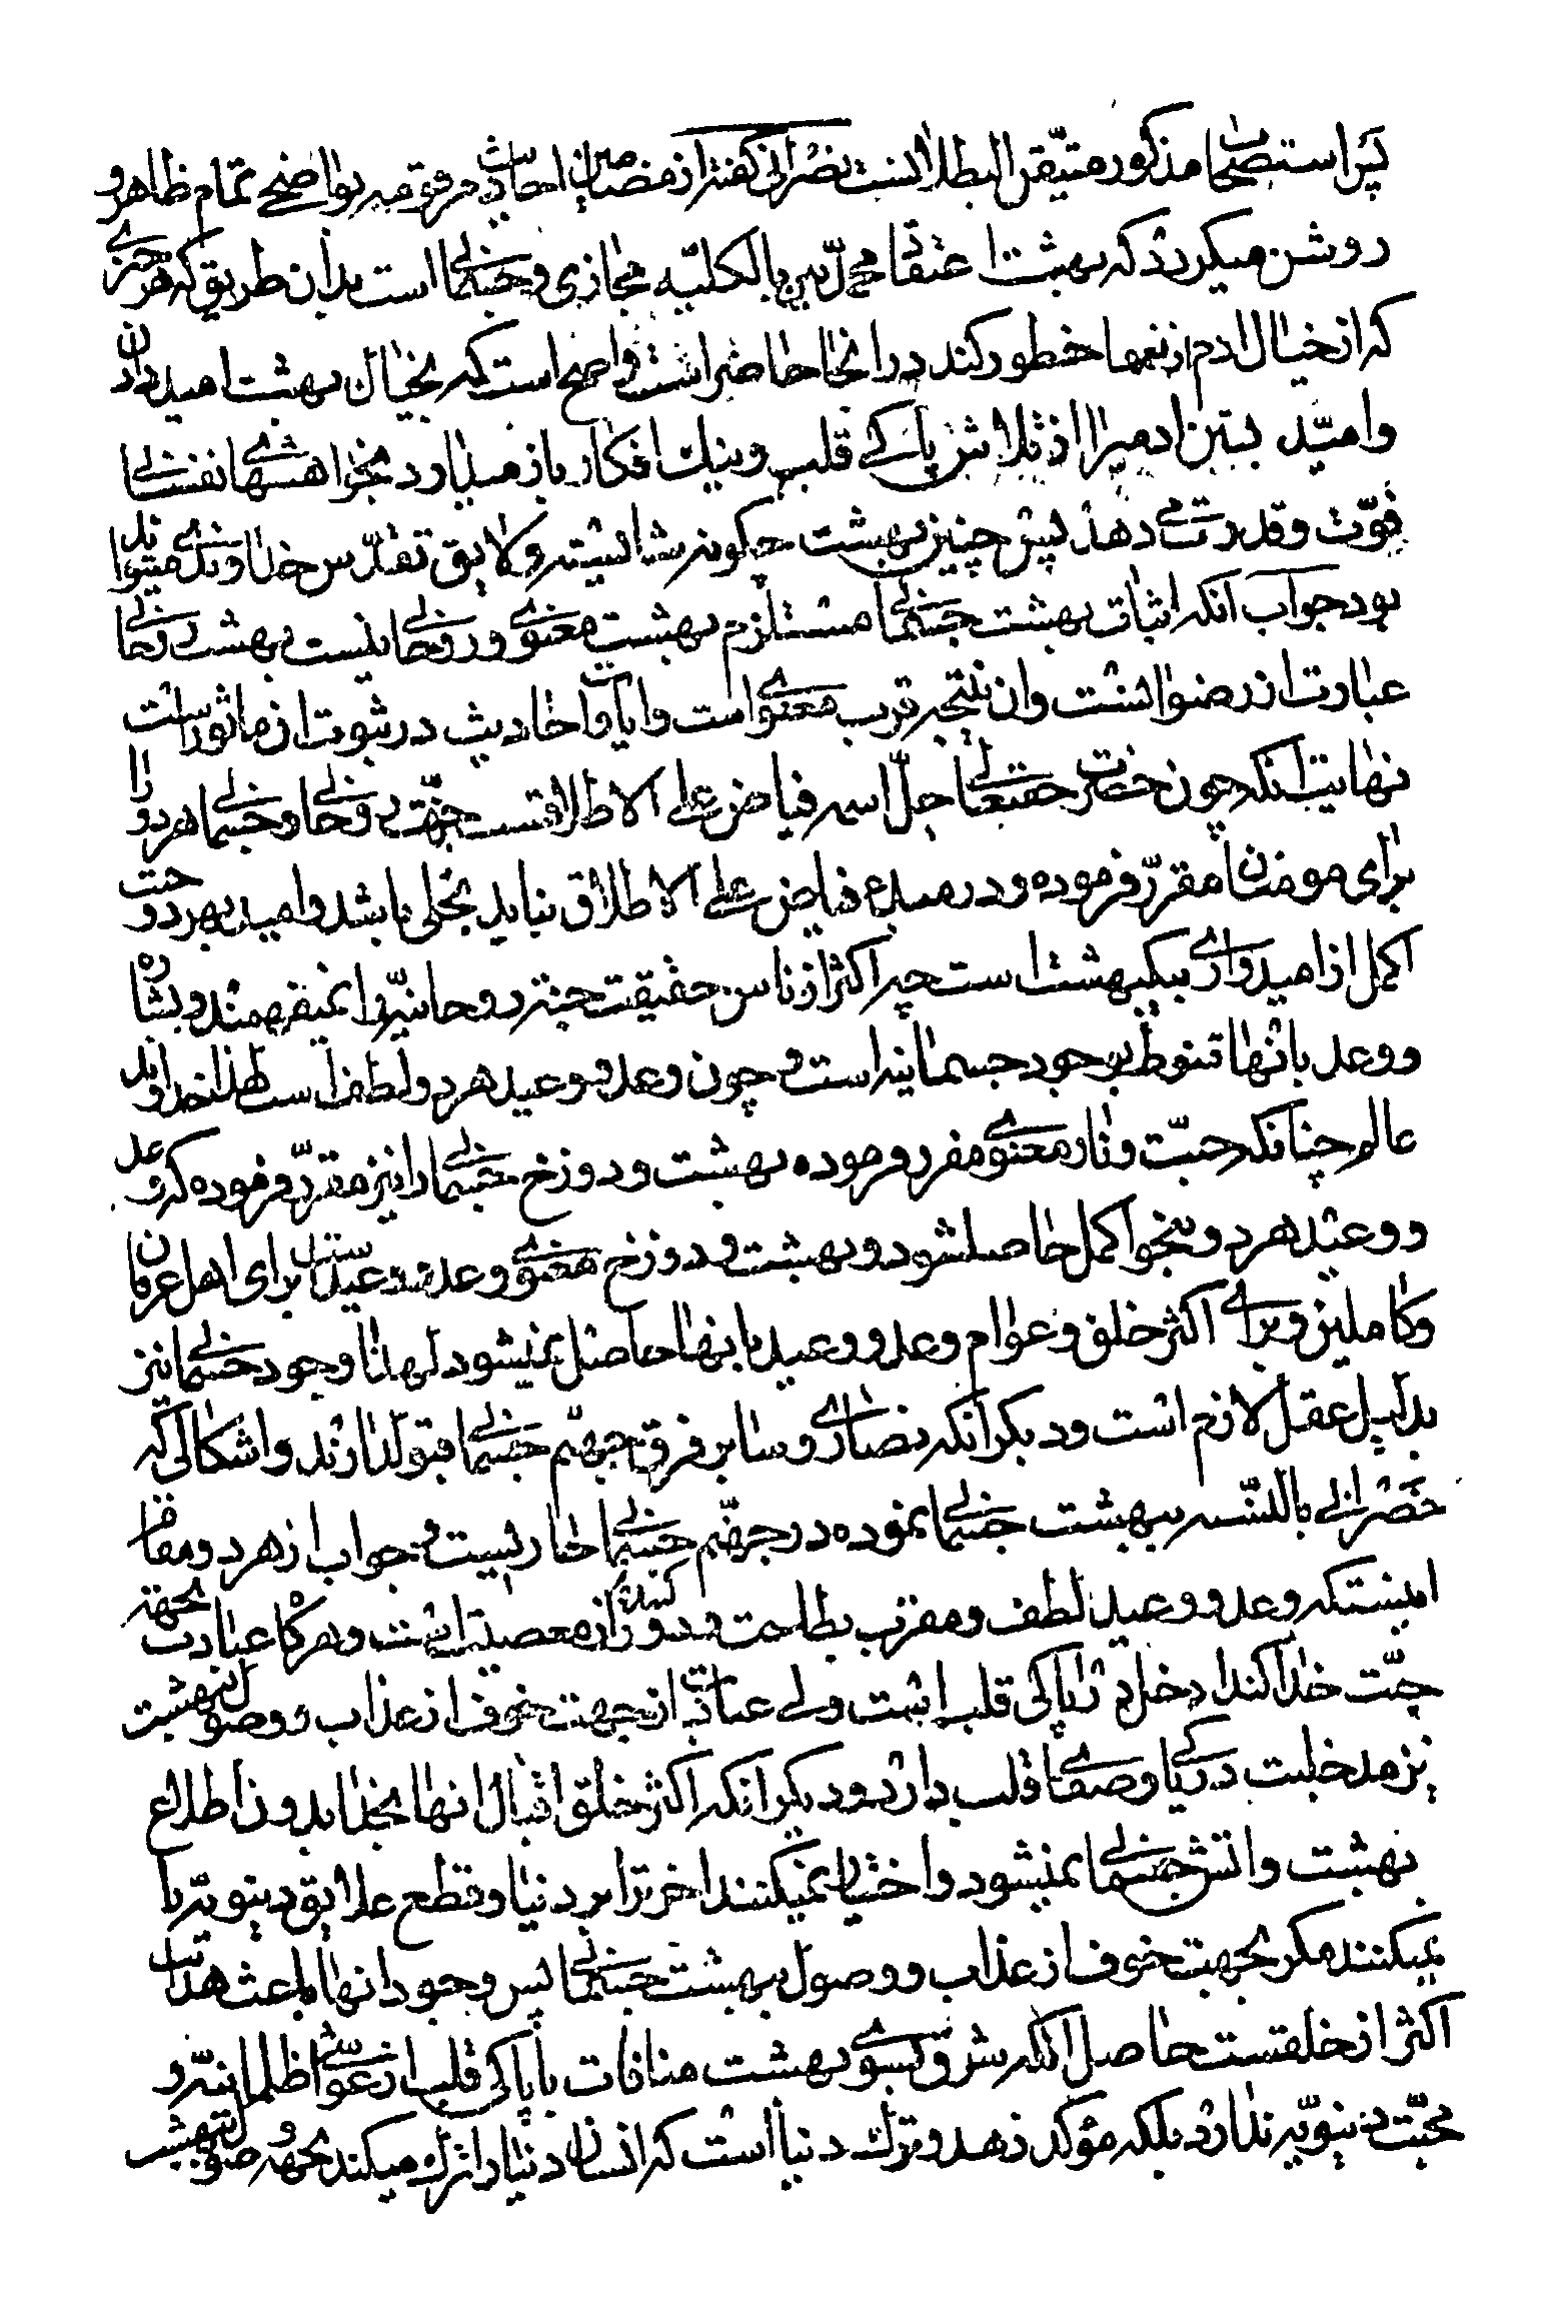 پس استصحاب مذکور متیقن البطلانست نصرانی گفته از مضامین احادیث مرقومه بواضحی تمام ظاهر و
روشن میگردد که بهشت اعتقاد محمدیین بالکلیه مجازی و جسمانی است بدان طریق که هر چیزی
که از خیال ادم از نعمها خطور کند در انجا حاضر است واضح است که بخیال بهشت امیدواران
وامید بستن ادمیرا از تلاش پاکی قلب و نیک افکار باز میدارد بخواهشهای نفسانی
قوت و قدرت می دهد پس چنین بهشت چگونه شایسته و لایق تقدس خداوندی میتواند
بود جواب انکه اثبات بهشت جسمانی مستلزم بهشت معنوی و روحانی نیست بهشت روحانی
عبارت از رضوانست وان نتیجه قرب معنوی است وایات واحادیث در ثبوت ان ماثور است
نهایت انکه چون حضرت حقتعالی جل اسمه فیاض علی الاطلاقست جنت روحانی و جسمانی هر دو را
برای مومنان مقرر فرموده و در مبدء فیاض علی الاطلاق نباید بخلی باشد وامید بهر دو جنت
اکمل از امیدواری بیک بهشت است چه اکثر از ناس حقیقت جنت روحانیه را نمیفهمند و بشاره
و وعد بانها منوط بوجود جسمانیه است و چون وعد و وعید هر دو لطف است لهذا خداوند
عالم چنانکه جنت و نار معنوی مقرر فرموده بهشت و دوزخ جسمانی را نیز مقرر فرموده که وعد
و وعید هر دو بنحو اکمل حاصل شود و بهشت و دوزخ معنوی وعد و وعیدستان برای اهل عرفان
و کاملین و برای اکثر خلق و عوام وعد و وعید بانها حاصل نمیشود لهذا وجود جسمانی نیز
بدلیل عقل لازم است و دیگر انکه نصاری و سایر فرق جهنم جسمانی قبول دارند و اشکالی که
نصرانی بالنسبه ببهشت جسمانی نموده در جهنم جسمانی جاریست و جواب از هر دو مقام
اینستکه وعد و وعید لطف و مقرب بطاعت و دور کننده از معصیت است و هر گاه عبادت بجهة
جنت خدا کند داخل در ناپاکی قلب است ولی عبادت از جهت خوف از عذاب و وصول ببهشت
نیز مدخلیت در پاکی و صفای قلب دارد و دیگر انکه اکثر خلق اقبال انها بخدا بدون اطلاع
بهشت و اتش جسمانی نمیشود و اختیار نمیکنند اخرت را بر دنیا و قطع علایق دنیویه را
نمیکنند مگر بجهت خوف از عذاب و وصول ببهشت جسمانی پس وجود انها باعث هدایت
اکثر از خلقست حاصل انکه شوق بسوی بهشت منافات با پاکی قلب از غواشی ظلمانیه و
محبت دنیویه ندارد بلکه مؤکد زهد و ترک دنیا است که انسان دنیا را ترک میکند بجهة وصول ببهشت